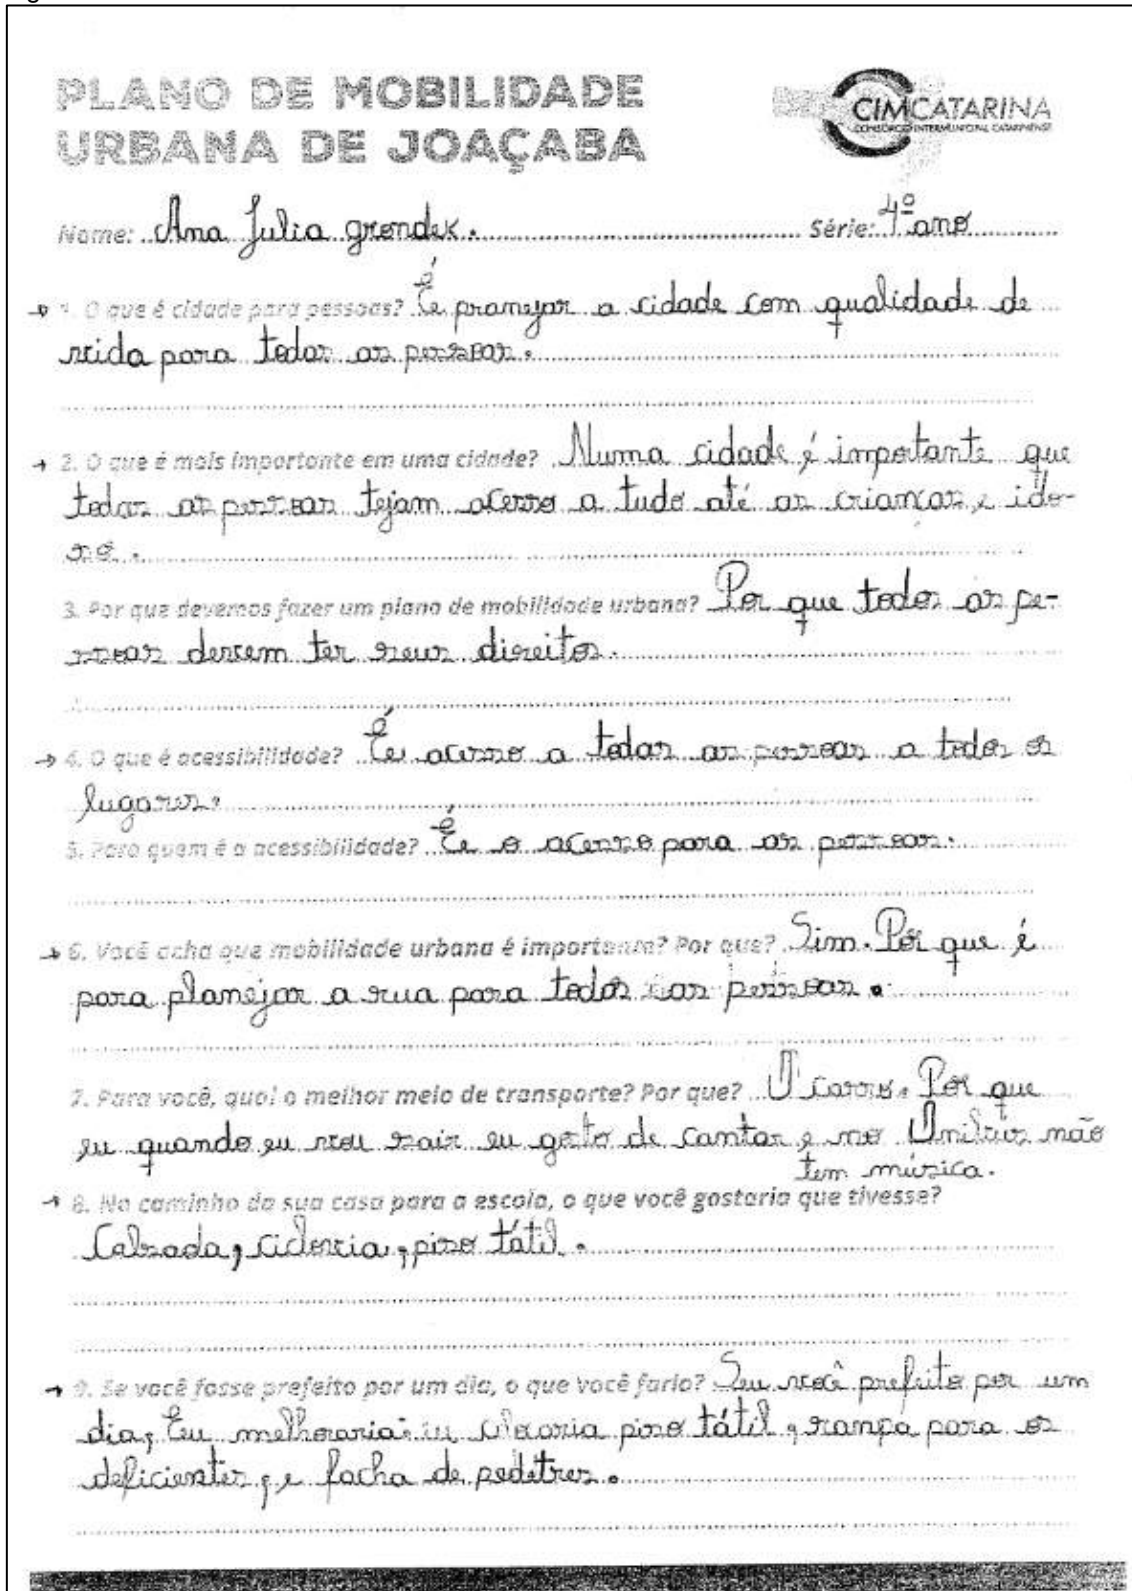 PLANO DE MOBILIDADE
URBANA DE JOAÇABA
CIMCATARINA
CONSÓRCIO INTERMUNICIPAL CATARINENSE
Nome: Ana Julia grendex. Série: 4º ano
1. O que é cidade para pessoas? É pramejar a cidade com qualidade de
vida para todas as pessoas.
2. O que é mais importante em uma cidade? Numa cidade é importante que
todas as pessoas tejam acesso a tudo até as criancas, e ido-
so.
3. Por que devemos fazer um plano de mobilidade urbana? Por que todos as pe-
ssoas devem ter seus direitos.
4. O que é acessibilidade? É acesso a todas as pessoas a todos os
lugares.
5. Para quem é a acessibilidade? É o acesso para as pessoas.
6. Você acha que mobilidade urbana é importante? Por que? Sim. Por que é
para planejar a rua para todas as pessoas.
7. Para você, qual o melhor meio de transporte? Por que? O carro. Por que
eu quando eu vou sair eu gosto de cantar e no Onibus não
tem música.
8. No caminho da sua casa para a escola, o que você gostaria que tivesse?
Calsada, ciclovia, piso tátil.
9. Se você fosse prefeito por um dia, o que você faria? Seu você prefeito por um
dia, Eu melhoraria: eu colocaria piso tátil, rampa para os
deficientes, e facha de pedetres.